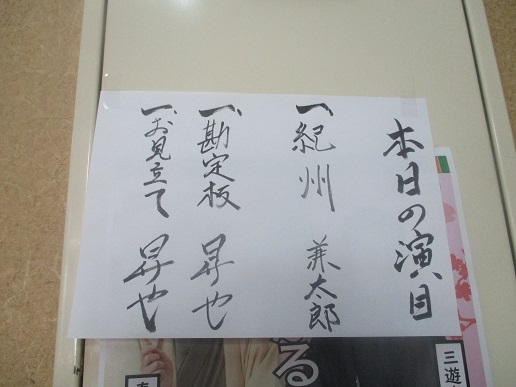 本日の演目
一、紀州 兼太郎
一、勘定板 昇也
一、お見立て 昇也
三遊
る